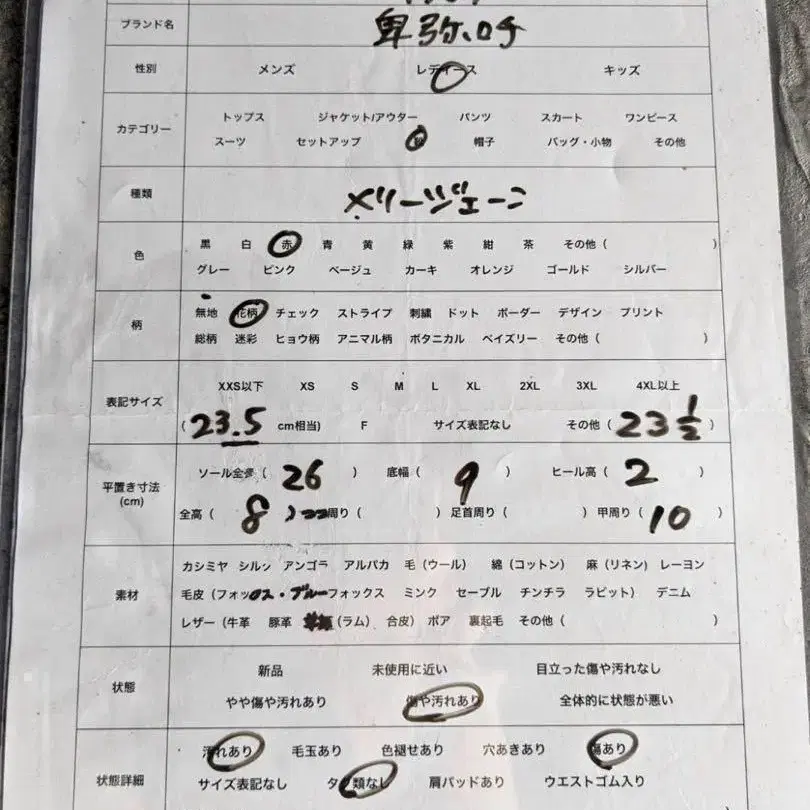 ブランド名 卑弥呼
性別 メンズ レディース キッズ
カテゴリー トップス ジャケット/アウター パンツ スカート ワンピース
スーツ セットアップ 帽子 バッグ・小物 その他
種類 メリージェーン
色 黒 白 赤 青 黄 緑 紫 紺 茶 その他 ( )
グレー ピンク ベージュ カーキ オレンジ ゴールド シルバー
柄 無地 花柄 チェック ストライプ 刺繍 ドット ボーダー デザイン プリント
総柄 迷彩 ヒョウ柄 アニマル柄 ボタニカル ペイズリー その他 ( )
表記サイズ XXS以下 XS S M L XL 2XL 3XL 4XL以上
( 23.5 cm相当) F サイズ表記なし その他 ( 23 1/2 )
平置き寸法 (cm) ソール全長 ( 26 ) 底幅 ( 9 ) ヒール高 ( 2 )
全高 ( 8 ) 周り ( ) 足首周り ( ) 甲周り ( 10 )
素材 カシミヤ シルク アンゴラ アルパカ 毛 (ウール) 綿 (コットン) 麻 (リネン) レーヨン
毛皮 (フォックス・ブルーフォックス ミンク セーブル チンチラ ラビット) デニム
レザー (牛革 豚革 (ラム) 合皮) ボア 裏起毛 その他 ( )
状態 新品 未使用に近い 目立った傷や汚れなし
やや傷や汚れあり 傷や汚れあり 全体的に状態が悪い
状態詳細 汚れあり 毛玉あり 色褪せあり 穴あきあり 傷あり
サイズ表記なし タグ類なし 肩パッドあり ウエストゴム入り